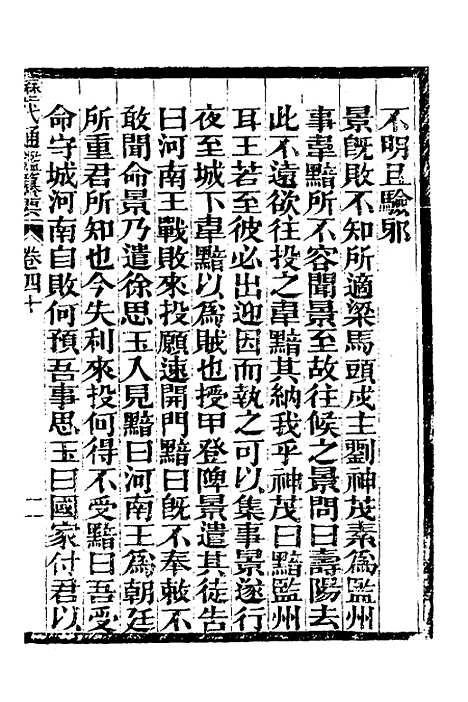 不明且驗邪
景旣敗不知所適梁馬頭戍主劉神茂素爲監州
事韋黯所不容聞景至故往候之景問曰壽陽去
此不遠欲往投之韋黯其納我乎神茂曰黯監州
耳王若至彼必出迎因而執之可以集事景遂行
夜至城下韋黯以爲賊也授甲登陴景遣其徒告
曰河南王戰敗來投願速開門黯曰旣不奉敕不
敢聞命景乃遣徐思玉入見黯曰河南王爲朝廷
所重君所知也今失利來投何得不受黯曰吾受
命守城河南自敗何預吾事思玉曰國家付君以
歷代通鑑纂要 卷四十 十一